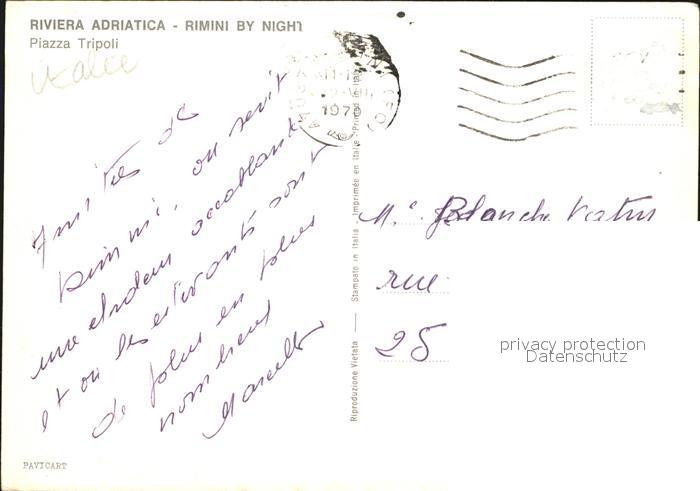 RIVIERA ADRIATICA - RIMINI BY NIGHT
Piazza Tripoli
Italie
1970
Amitiés de
Rimini, ou sévit
une chaleur accablante
et ou les estivants sont
de plus en plus
nombreux
Marcelle
Riproduzione Vietata — Stampato in Italia - Imprimée en Italie - Printed in Italy
M.e Blanche
rue
25
privacy protection
Datenschutz
PAVICART